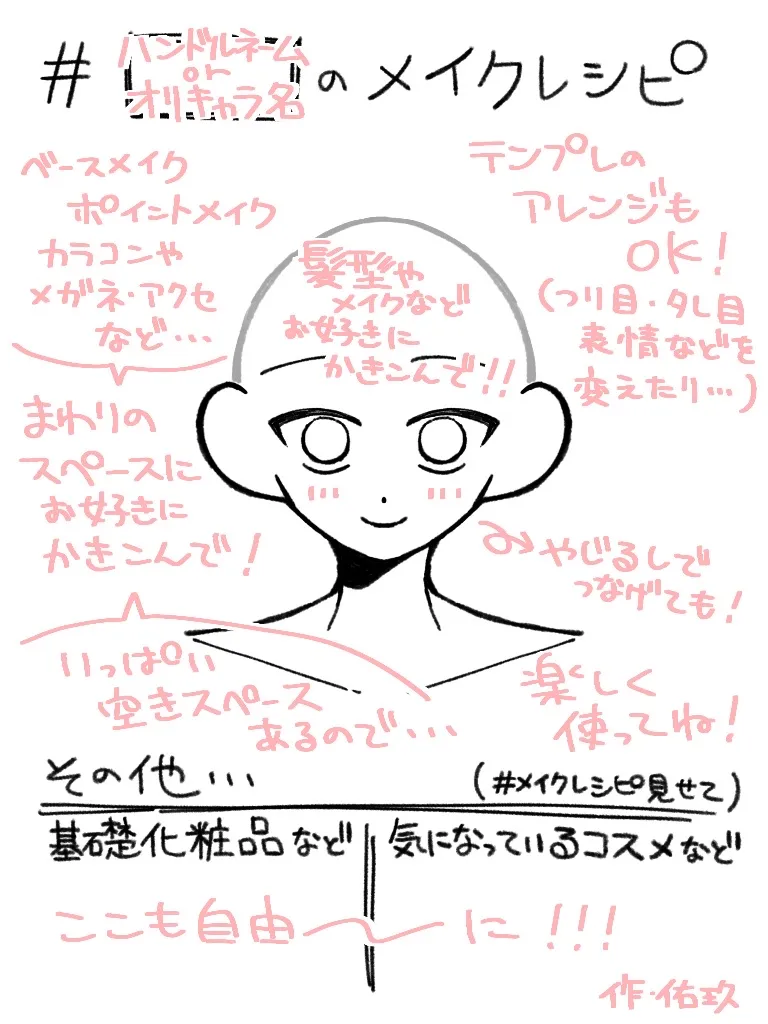 #
ハンドルネーム
or
オリキャラ名
のメイクレシピ
ベースメイク
ポイントメイク
カラコンや
メガネ・アクセ
など…
まわりの
スペースに
お好きに
かきこんで!
いっぱい
空きスペース
あるので…
髪型や
メイクなど
お好きに
かきこんで!!
テンプレの
アレンジも
OK!
(つり目・タレ目
表情などを
変えたり…)
やじるしで
つなげても!
楽しく
使ってね!
その他…
(#メイクレシピ見せて)
基礎化粧品など
気になっているコスメなど
ここも自由〜に!!!
作・佑玖